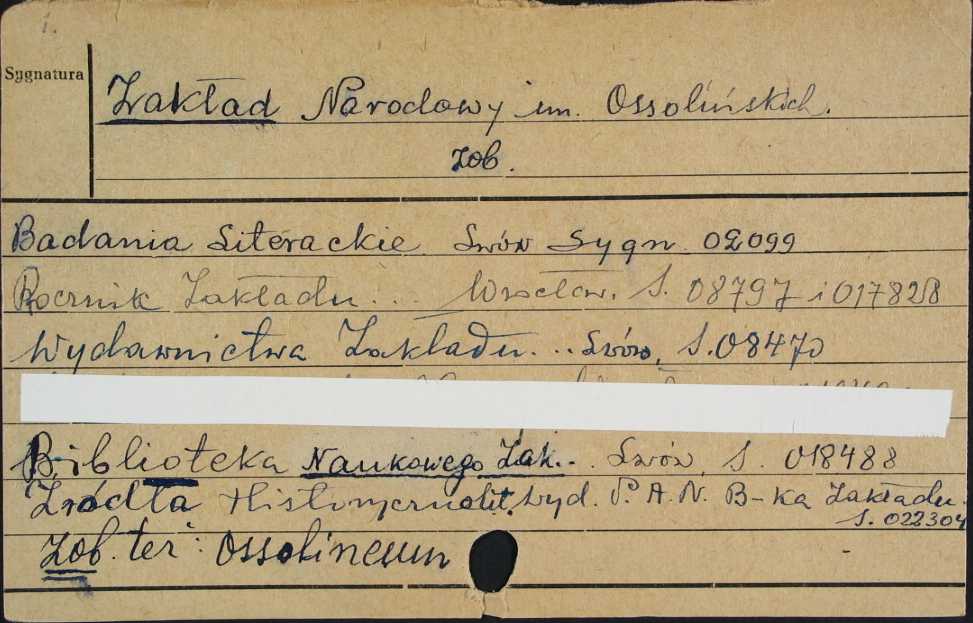 Sygnatura
Zakład Narodowy im. Ossolińskich.
zob.
Badania Literackie Lwów Sygn. 02099
Rocznik Zakładu... Wrocław. S. 08797 i 017828
Wydawnictwa Zakładu... Lwów, S. 08470
Biblioteka Naukowego Zak... Lwów, S. 018488
Źródła Historycznolit. Wyd. P.A.N. B-ka Zakładu.
S. 022304
Zob. też: Ossolineum